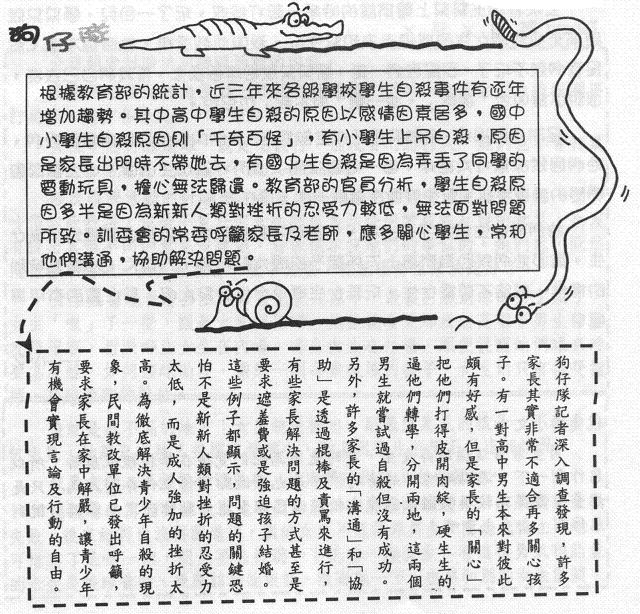 狗仔隊
根據教育部的統計，近三年來各級學校學生自殺事件有逐年
增加趨勢。其中高中學生自殺的原因以感情因素居多，國中
小學生自殺原因則「千奇百怪」，有小學生上吊自殺，原因
是家長出門時不帶她去，有國中生自殺是因為弄丟了同學的
電動玩具，擔心無法歸還。教育部的官員分析，學生自殺原
因多半是因為新新人類對挫折的忍受力較低，無法面對問題
所致。訓委會的常委呼籲家長及老師，應多關心學生，常和
他們溝通，協助解決問題。
狗仔隊記者深入調查發現，許多
家長其實非常不適合再多關心孩
子。有一對高中男生本來對彼此
頗有好感，但是家長的「關心」
把他們打得皮開肉綻，硬生生的
逼他們轉學，分開兩地，這兩個
男生就嘗試過自殺但沒有成功。
另外，許多家長的「溝通」和「協
助」是透過棍棒及責罵來進行，
有些家長解決問題的方式甚至是
要求遮羞費或是強迫孩子結婚。
這些例子都顯示，問題的關鍵恐
怕不是新新人類對挫折的忍受力
太低，而是成人強加的挫折太
高。為徹底解決青少年自殺的現
象，民間教改單位已發出呼籲，
要求家長在家中解嚴，讓青少年
有機會實現言論及行動的自由。